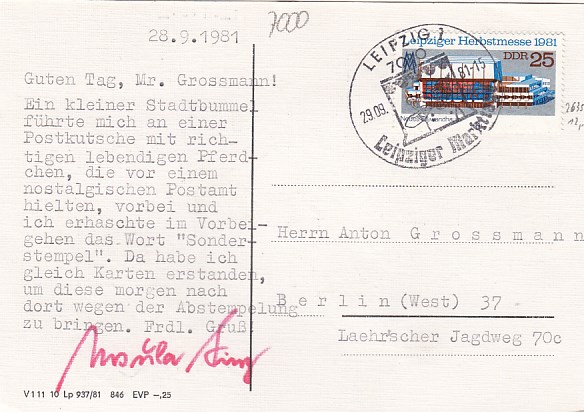 7000
28.9.1981
Guten Tag, Mr. Grossmann!
Ein kleiner Stadtbummel
führte mich an einer
Postkutsche mit rich-
tigen lebendigen Pferd-
chen, die vor einem
nostalgischen Postamt
hielten, vorbei und
ich erhaschte im Vorbei-
gehen das Wort "Sonder-
stempel". Da habe ich
gleich Karten erstanden,
um diese morgen nach
dort wegen der Abstempelung
zu bringen. Frdl. Gruß!
V 11 1 10 Lp 937/81 846 EVP -,25
LEIPZIG
29.09.
81-15
Leipziger
Leipziger Herbstmesse 1981
DDR 25
Herrn Anton Grossmann
Berlin (West) 37
Laehr'scher Jagdweg 70c